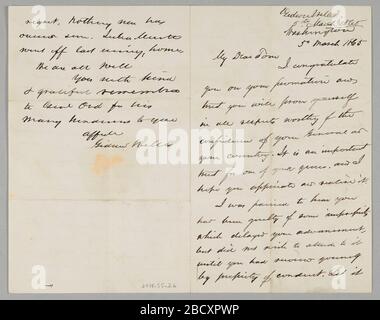 Gideon Welles
Washington
5th March 1865
My Dear Tom
I congratulate
you on your promotion and
trust you will prove yourself
in all respects worthy of the
confidence of your
your country. It is an important
trust for one of your years, and I
hope you appreciate and realize it.
I was pained to hear you
had been guilty of some impropriety
which delayed your advancement,
but did not wish to allude to it
until you had shown yourself
by propriety of conduct. Let it
Nothing new has
went off last evening, home
We are all well
You with kind
& grateful remembrance
to Genl Ord for his
many kindnesses to you
affte
Gideon Welles
alamy
2BCXPWP